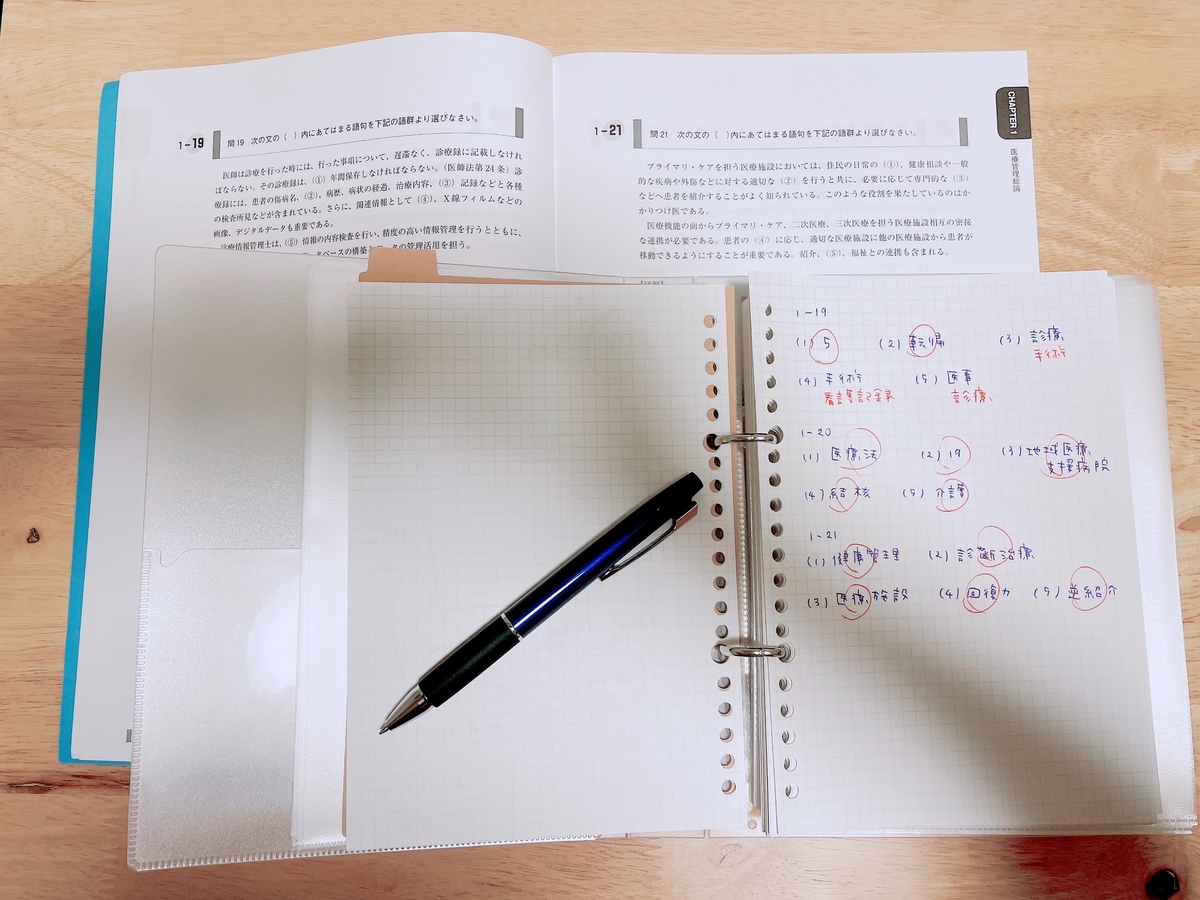 1-19
問19 次の文の（ ）内にあてはまる語句を下記の語群より選びなさい。
医師は診療を行った時には、行った事項について、遅滞なく、診療録に記載しなけれ
ばならない。その診療録は、（①）年間保存しなければならない。（医師法第24条）診
療録には、患者の傷病名、（②）、病歴、病状の経過、治療内容、（③）記録などと各種
の検査所見などが含まれている。さらに、関連情報として（④）、X線フィルムなどの
画像、デジタルデータも重要である。
診療情報管理士は、（⑤）情報の内容検査を行い、精度の高い情報管理を行うとともに、
ータベースの構築と
の管理活用を担う。
1-21
問21 次の文の（ ）内にあてはまる語句を下記の語群より選びなさい。
プライマリ・ケアを担う医療施設においては、住民の日常の（①）、健康相談や一般
的な疾病や外傷などに対する適切な（②）を行うと共に、必要に応じて専門的な（③）
などへ患者を紹介することがよく知られている。このような役割を果たしているのはか
かりつけ医である。
医療機能の面からプライマリ・ケア、二次医療、三次医療を担う医療施設相互の密接
な連携が必要である。患者の（④）に応じ、適切な医療施設に他の医療施設から患者が
移動できるようにすることが重要である。紹介、（⑤）、福祉との連携も含まれる。
CHAPTER 1
医療管理総論
1-19
(1) 5 (2) 転帰 (3) 診療
手術
(4) 手術 (5) 医事
看護記録 診療
1-20
(1) 医療法 (2) 19 (3) 地域医療
支援病院
(4) 結核 (5) 介護
1-21
(1) 健康管理 (2) 診断治療
(3) 医療施設 (4) 回復力 (5) 逆紹介